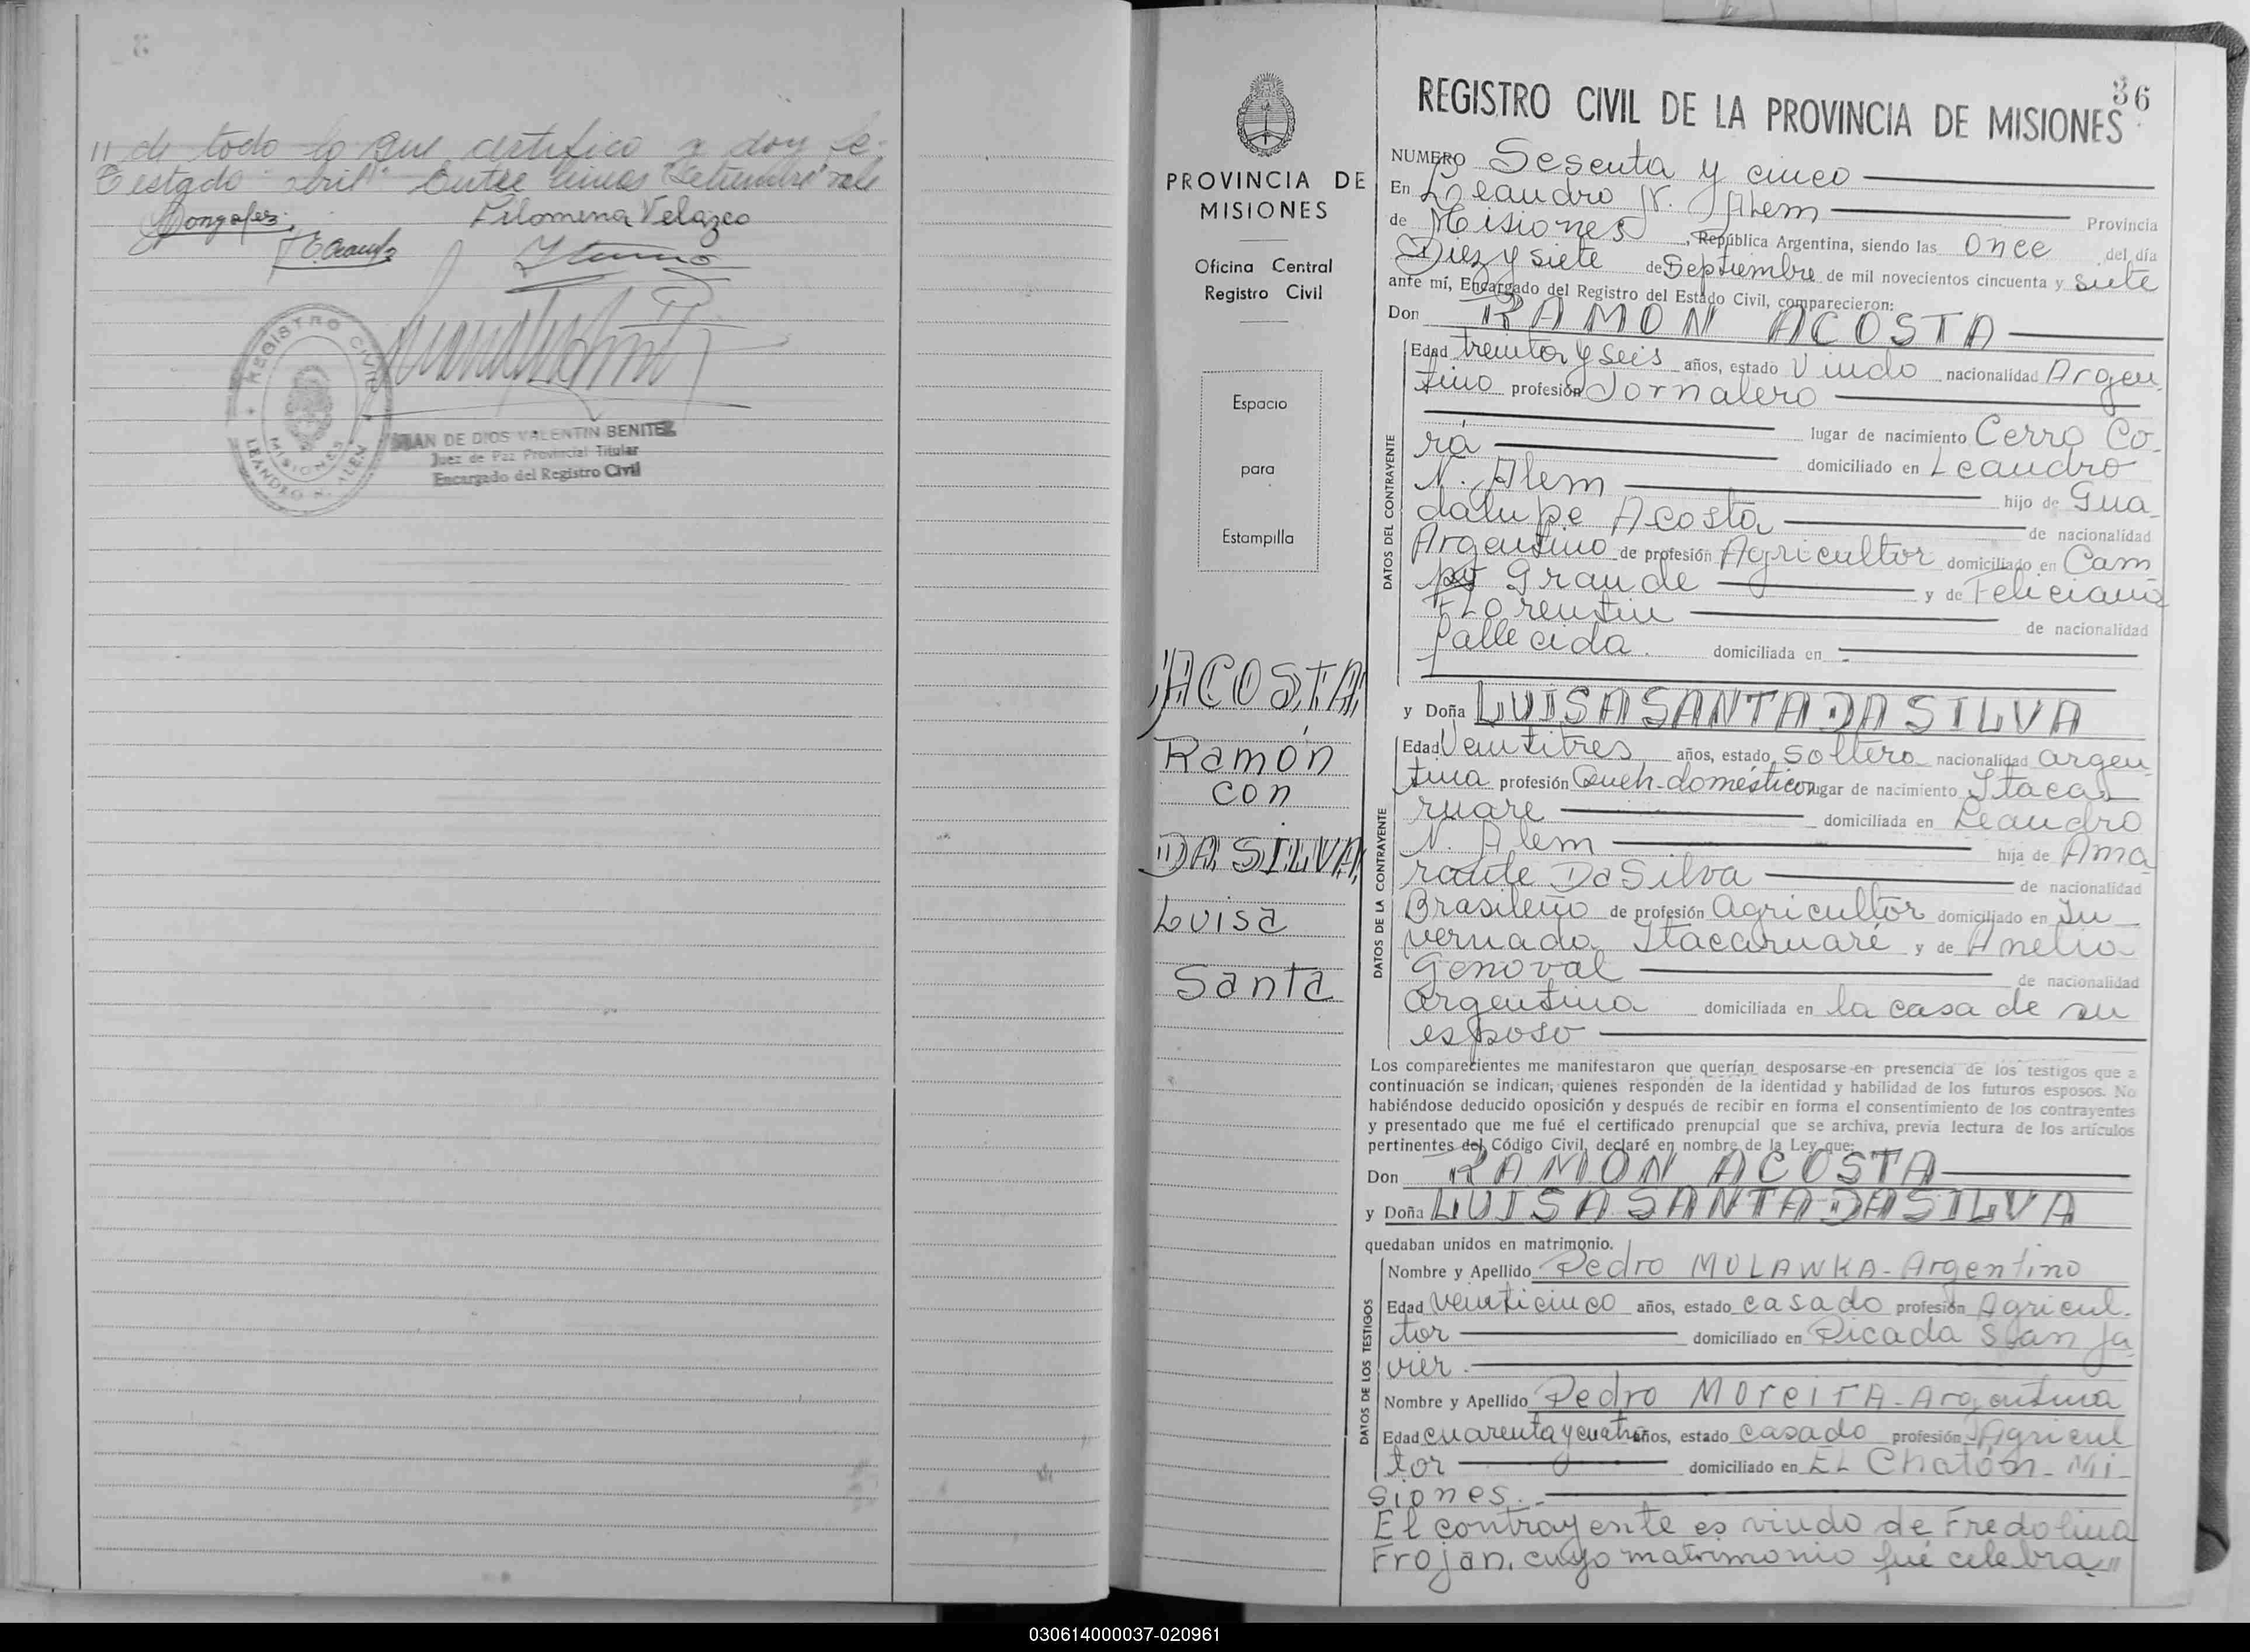 // de todo lo que certifico y doy fe.
Testado "abril" Entre lineas "Setiembre" vale
Filomena Velazco
REGISTRO CIVIL
MISIONES
LEANDRO N. ALEM
JUAN DE DIOS VALENTIN BENITEZ
Juez de Paz Provincial Titular
Encargado del Registro Civil
PROVINCIA DE
MISIONES
Oficina Central
Registro Civil
Espacio
para
Estampilla
"ACOSTA"
Ramón
con
"DA SILVA"
Luisa
Santa
36
REGISTRO CIVIL DE LA PROVINCIA DE MISIONES
NUMERO Sesenta y cinco
En Leandro N. Alem Provincia
de Misiones, República Argentina, siendo las Once del día
Diez y siete de Septiembre de mil novecientos cincuenta y siete
ante mí, Encargado del Registro del Estado Civil, comparecieron:
Don RAMON ACOSTA
DATOS DEL CONTRAYENTE
Edad treinta y seis años, estado Viudo nacionalidad Argen
tino profesión Jornalero
lugar de nacimiento Cerro Co-
rá domiciliado en Leandro
N. Alem hijo de Gua-
dalupe Acosta de nacionalidad
Argentino de profesión Agricultor domiciliado en Cam
po Grande y de Feliciana
Florentin de nacionalidad
fallecida. domiciliada en -
y Doña LUISA SANTA DA SILVA
DATOS DE LA CONTRAYENTE
Edad Veintitres años, estado soltero nacionalidad argen
tina profesión Queh-doméstico lugar de nacimiento Itaca-
ruare domiciliada en Leandro
N. Alem hija de Ama
rante DaSilva de nacionalidad
Brasileño de profesión Agricultor domiciliado en In
vernada Itacaruaré y de Anelia
Genoval de nacionalidad
argentina domiciliada en la casa de su
esposo
Los comparecientes me manifestaron que querían desposarse en presencia de los testigos que a
continuación se indican, quienes responden de la identidad y habilidad de los futuros esposos. No
habiéndose deducido oposición y después de recibir en forma el consentimiento de los contrayentes
y presentado que me fué el certificado prenupcial que se archiva, previa lectura de los artículos
pertinentes del Código Civil, declaré en nombre de la Ley que:
Don RAMON ACOSTA
y Doña LUISA SANTA DA SILVA
quedaban unidos en matrimonio.
DATOS DE LOS TESTIGOS
Nombre y Apellido Pedro MULAWKA - Argentino
Edad Veinticinco años, estado casado profesión Agricul-
tor domiciliado en Picada San Ja
vier.
Nombre y Apellido Pedro MOreirA - Argentina
Edad cuarenta y cuatro años, estado casado profesión Agricul
tor domiciliado en EL Chatón - Mi-
siones.
El contrayente es viudo de Fredolina
Frojan, cuyo matrimonio fué celebra//
030614000037-020961